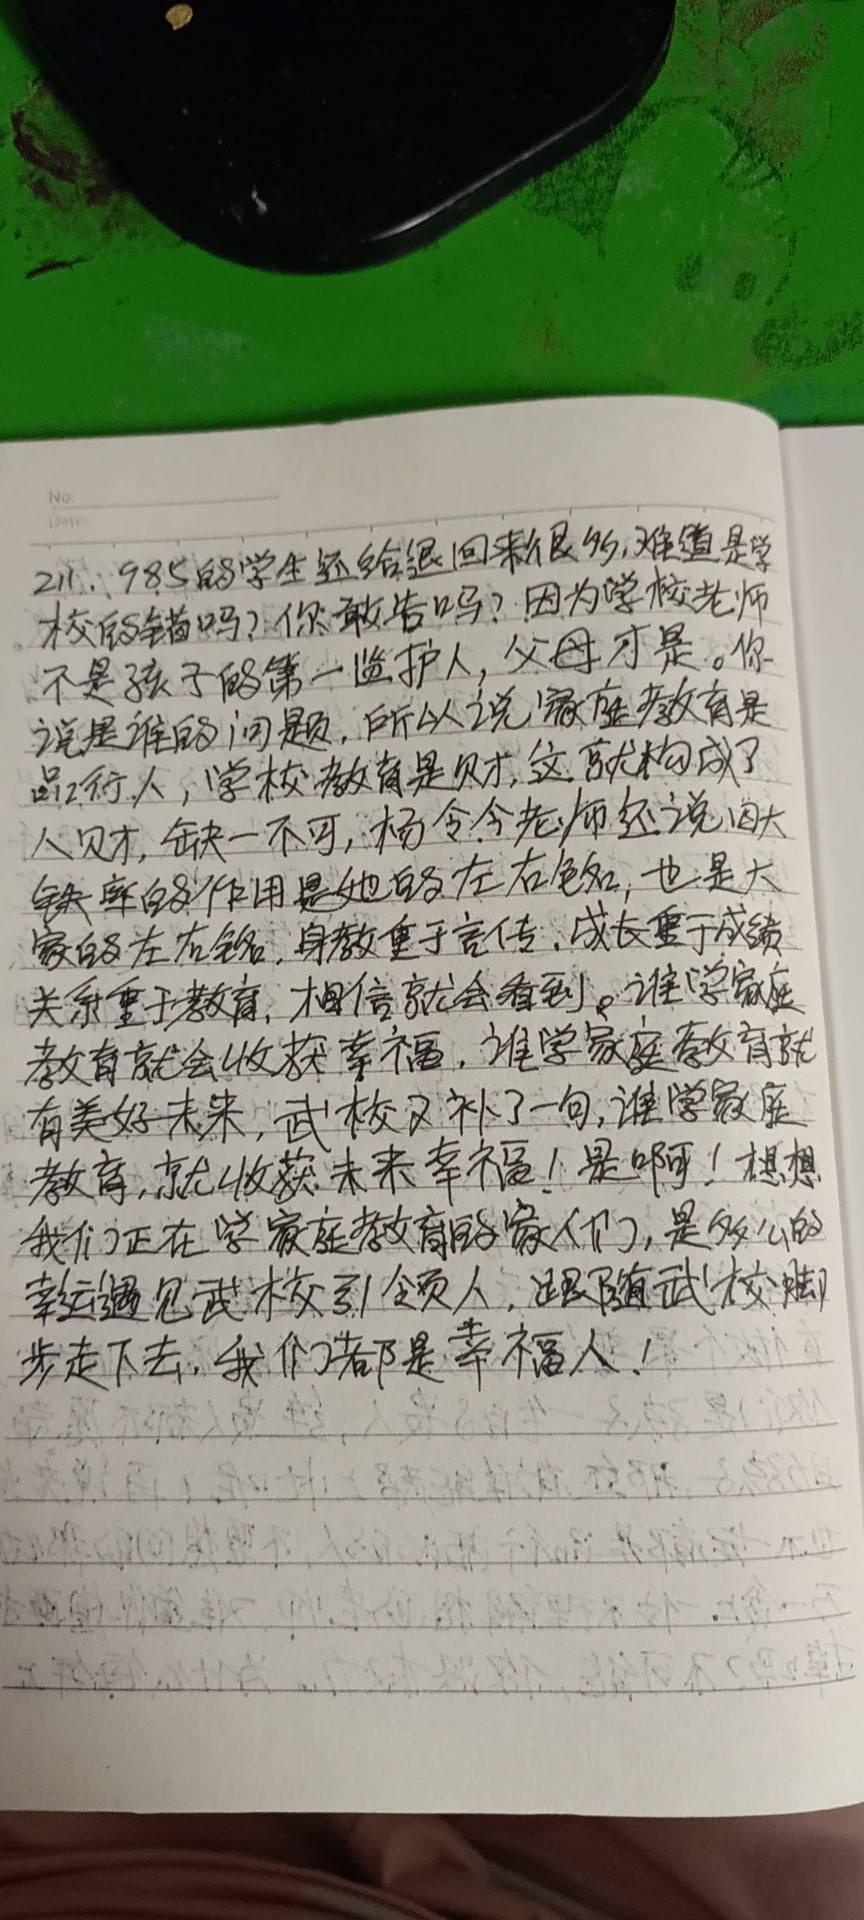 No.
Date
211、985的学生还给退回来很多,难道是学
校的错吗?你敢告吗?因为学校老师
不是孩子的第一监护人,父母才是。你
说是谁的问题,所以说家庭教育是
品行人,学校教育是财,这就构成了
人财,缺一不可,杨令令老师还说四大
铁率的作用是她的左右铭,也是大
家的左右铭,身教重于言传,成长重于成绩
关系重于教育,相信就会看到。谁学家庭
教育就会收获幸福,谁学家庭教育就
有美好未来,武校又补了一句,谁学家庭
教育,就收获未来幸福!是啊!想想
我们正在学家庭教育的家人们,是多么的
幸运遇见武校引领人,跟随武校脚
步走下去,我们都是幸福人!